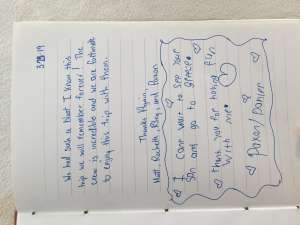 3/28/19
We had such a blast. I know this
trip we will remember forever! The
crew is incredible and we are fortunate
to enjoy this trip with them.
Thanks
Matt, Riley, and
I Cant wait to see your
and go to greece
Thank you for having fun
with me